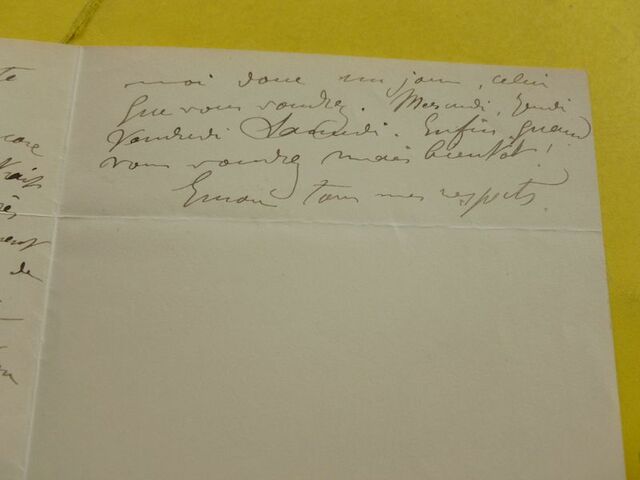 moi donc un jour, celui
que vous voudrez. Mercredi, Jeudi
Vendredi Samedi. Enfin quand
vous voudrez mais bientôt!
tous mes respects.
te
core
de